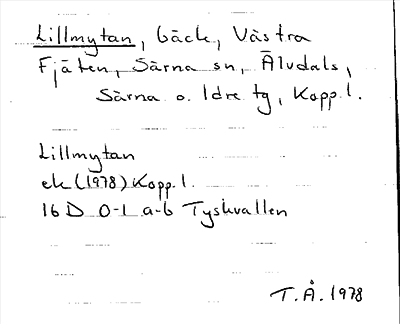 Lillmytan, bäck, Västra
Fjäten, Särna sn, Älvdals,
Särna o. Idre tg, Kopp. l.
Lillmytan
ek (1978) Kopp. l.
16 D 0-1 a-b Tyskvallen
T. Å. 1978